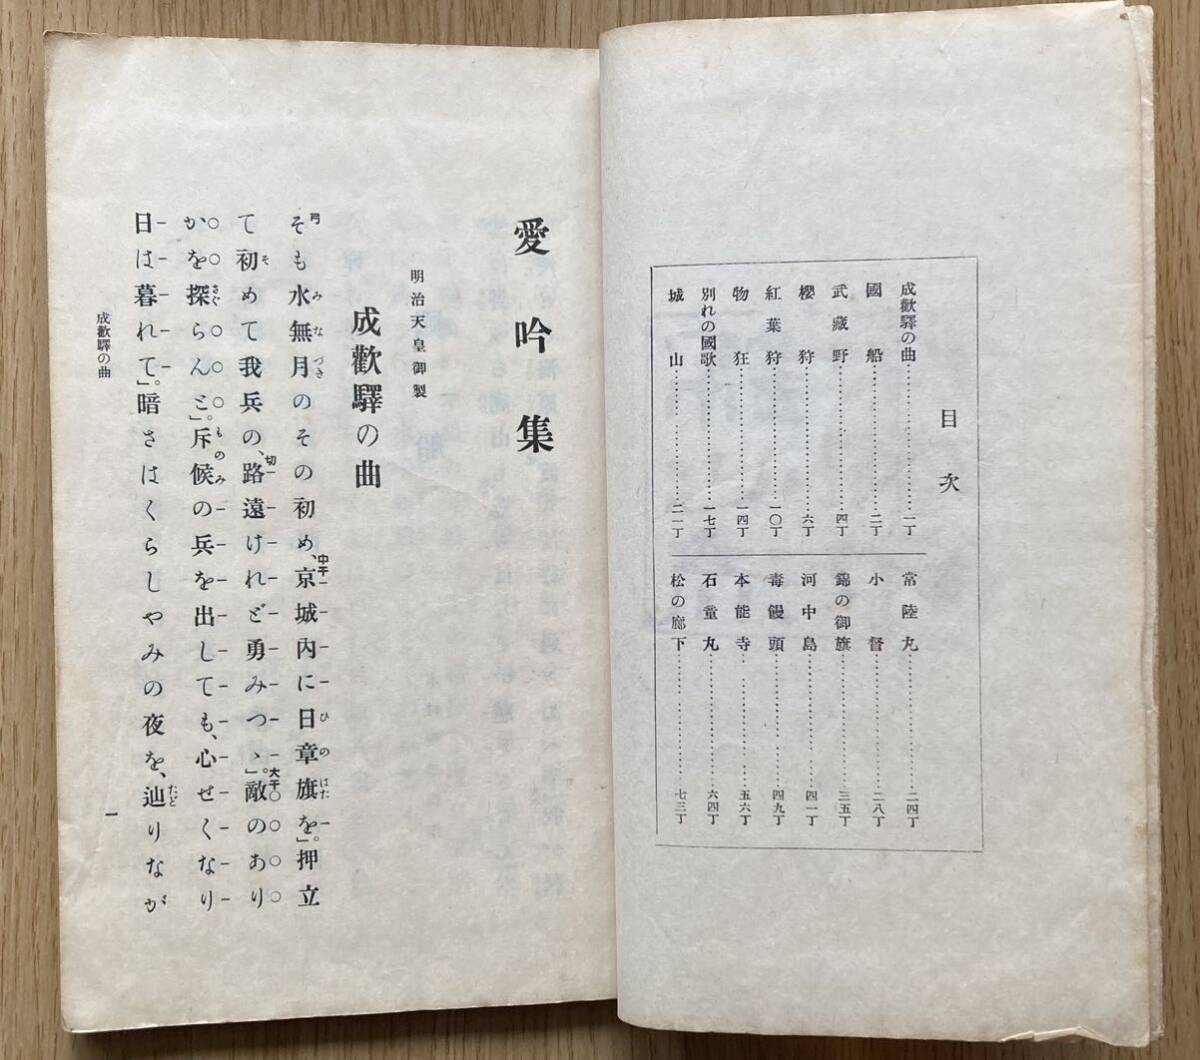 目次
成歡驛の曲………二丁
國船………二丁
武藏野………四丁
櫻狩………六丁
紅葉狩………一〇丁
物狂………一四丁
別れの國歌………一七丁
城山………二一丁
常陸丸………二四丁
小督………二八丁
錦の御旗………三五丁
河中島………四一丁
毒饅頭………四九丁
本能寺………五六丁
石童丸………六四丁
松の廊下………七三丁
愛吟集
明治天皇御製
成歡驛の曲
そも水無月のその初め、京城内に日章旗を」。押立
て初めて我兵の、路遠けれど勇みつゝ」。敵のあり
かを探らんと」。斥候の兵を出しても、心せくなり
日は暮れて」。暗さはくらしやみの夜を、辿りなが
成歡驛の曲
一